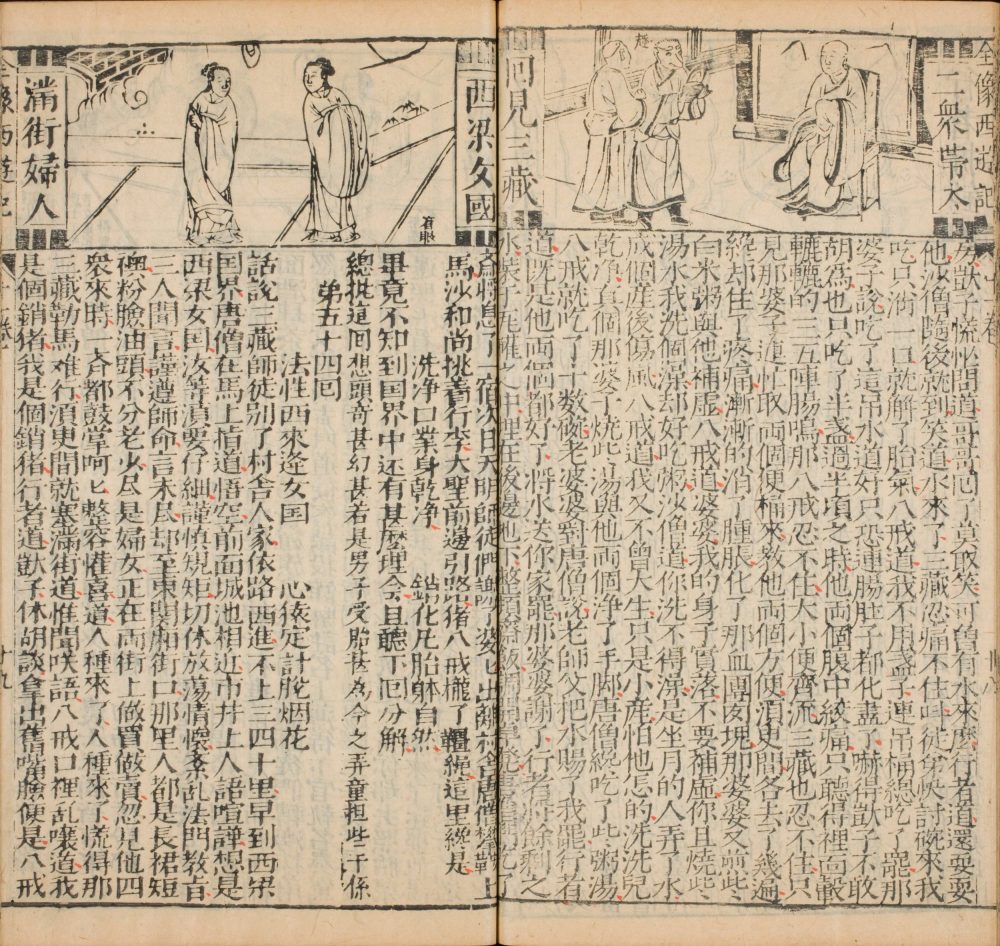 全像西遊記
十一卷
十八
二衆帶水
回見三藏
房獃子慌忙問道哥哥已了莫取笑可曾有水來麼行者還耍耍
他沙僧隨後就到笑道水來了三藏忍痛不住叫徒弟快討碗來我
吃只消一口就解了胎氣八戒道我不用盞子連吊桶總吃了罷那
婆子說吃了這吊水道好只恐連腸肚子都化盡了嚇得獃子不敢
胡爲也只吃了半盞過半頃之時他両個腹中絞痛只聽得裡面轂
轆轆的三五陣腸鳴那八戒忍不住大小便齊流三藏也忍不住只
見那婆子連忙取両個便桶來教他両個方便須史間各去了幾遍
纔却住了疼痛漸漸的消了腫脹化了那血團肉塊那婆婆又煎些
白米粥與他補虛八戒道婆婆我的身子實落不要補虛你且燒些
湯水我洗個澡却好吃粥沙僧道你洗不得澡是坐月的人弄了水
成個産後傷風八戒道我又不曾大生只是小産怕他怎的洗洗兒
乾净真個那婆子燒些湯與他両個净了手脚唐僧纔吃了些粥湯
八戒就吃了十數碗老婆婆對唐僧說老師父把水賜了我罷行者
道既是他両個都好了將水送你家罷那婆婆謝了行者將餘剩之
水裝于瓦罐之中埋在後邊地下整頓齋飯
西梁女國
滿街婦人
息了一宿次日天明師徒們謝了婆匕出離村舍唐僧攀鞍上
馬沙和尚挑着行李大聖前邊引路猪八戒攏了韁繩這里纔是
洗净口業身乾净 銷化凡胎躰自然
畢竟不知到国界中还有甚麽理会且聽下回分解
總批這回想頭奇甚幻甚若是男子受胎甚爲今之弄童担些干係
第五十四回
法性西來逢女国 心猿定計脫烟花
話說三藏師徒别了村舍人家依路西進不上三四十里早到西梁
国界唐僧在馬上指道悟空前面城池相近市井上人語喧譁想是
西梁女国汝等須要仔細謹慎規矩切休放蕩情懷紊乱法門教旨
三人聞言謹遵師命言未尽却至東関廂街口那里人都是長裙短
襖粉臉油頭不分老少尽是婦女正在両街上做買做賣忽見他四
衆來時一斉都鼓掌呵匕整容懽喜道人種來了人種來了慌得那
三藏勒馬难行須史間就塞滿街道惟聞咲語八戒口裡乱嚷道我
是個銷猪我是個銷猪行者道獃子休胡談拿出舊嘴臉便是八戒
全像西遊記
十一卷
十九